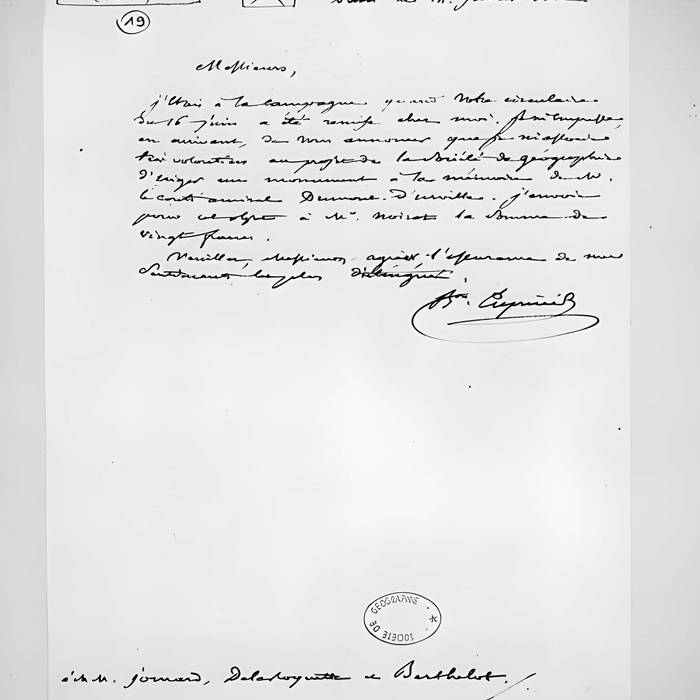 19
Messieurs,
j'étais à la campagne quand votre circulaire
du 16 juin a été remise chez moi. Je m'empresse,
en arrivant, de vous annoncer que je m'associe
très volontiers au projet de la Société de géographie
d'ériger un monument à la mémoire de M.
le contre amiral Dumont-D'urville. j'envoie
pour cet objet à Mr. Noirot la somme de
vingt francs.
Veuillez, Messieurs, agréer l'assurance de mes
sentiments les plus distingués.
Bon.
SOCIÉTÉ DE GÉOGRAPHIE
à M.M. jomard, Delaroquette et Berthelot.